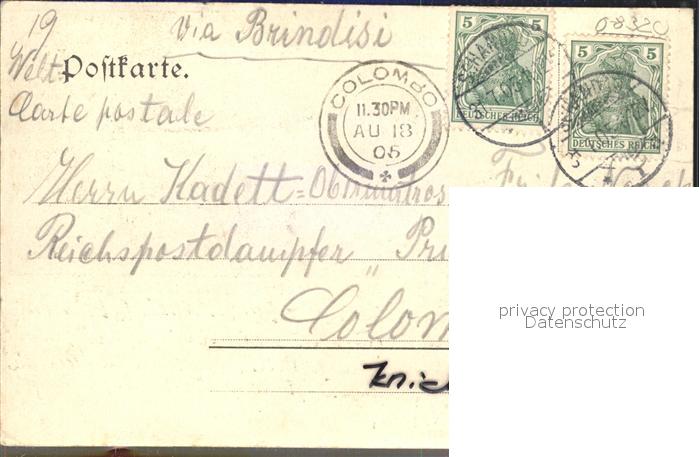 19
via Brindisi
08320
Welt
Postkarte.
Carte postale
5 5
DEUTSCHES REICH
5 5
DEUTSCHES REICH
COLOMBO
11.30PM
AU 18
05
Herrn Kadett=Obermatros
Reichspostdampfer „Pri
Colom
Knick
privacy protection
Datenschutz